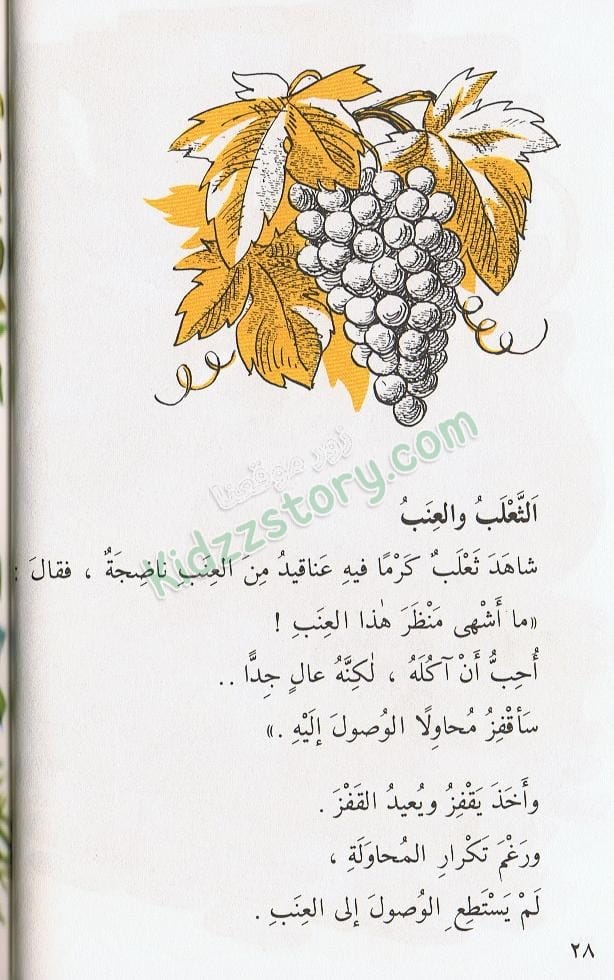 زور موقعنا
Kidzzstory.com
اَلثَّعْلَبُ والعِنَبُ
شاهَدَ ثَعْلَبٌ كَرْمًا فيهِ عَناقيدُ مِنَ العِنَبِ ناضِجَةٌ ، فقالَ :
«ما أَشْهى مَنْظَرَ هٰذا العِنَبِ !
أُحِبُّ أَنْ آكُلَهُ ، لٰكِنَّهُ عالٍ جِدًّا ..
سَأَقْفِزُ مُحاوِلًا الوُصولَ إلَيْهِ .»
وأَخَذَ يَقْفِزُ ويُعيدُ القَفْزَ .
ورَغْمَ تَكْرارِ المُحاوَلَةِ ،
لَمْ يَسْتَطِعِ الوُصولَ إلى العِنَبِ .
٢٨